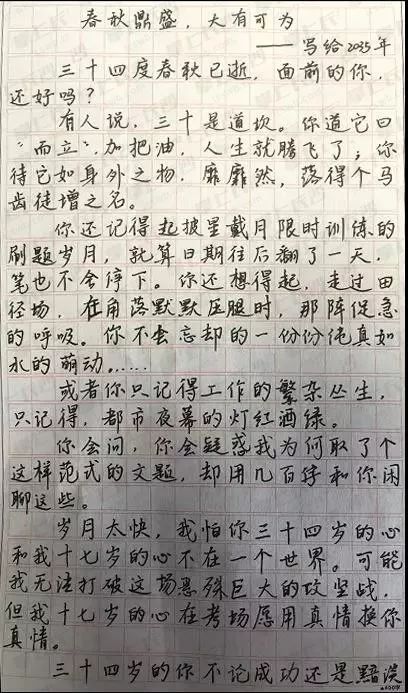 春秋鼎盛，大有可为
——写给2035年
三十四度春秋已逝，面前的你，
还好吗？
有人说，三十是道坎。你道它曰
“而立”，加把油，人生就腾飞了；你
待它如身外之物，靡靡然，落得个马
齿徒增之名。
你还记得起披星戴月限时训练的
刷题岁月，就算日期往后翻了一天，
笔也不会停下。你还想得起，走过田
径场，在角落默默压腿时，那阵促急
的呼吸。你不会忘却的一份份纯真如
水的萌动……
或者你只记得工作的繁杂丛生，
只记得，都市夜幕的灯红酒绿。
你会问，你会疑惑我为何取了个
这样范式的文题，却用几百字和你闲
聊这些。
岁月太快，我怕你三十四岁的心
和我十七岁的心不在一个世界。可能
我无法打破这场悬殊巨大的攻坚战，
但我十七岁的心在考场愿用真情换你
真情。
三十四岁的你不论成功还是黯淡